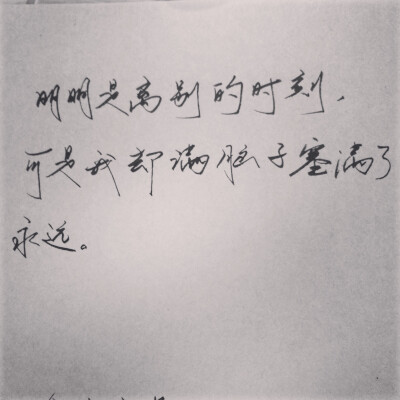 明明是离别的时刻，
可是我却满脑子塞满了
永远。